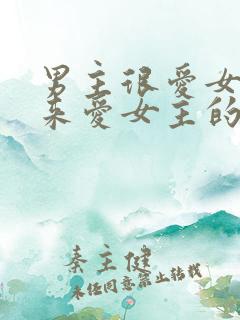 男主很爱女
来爱女主的
秦主健
未经同意禁止转载